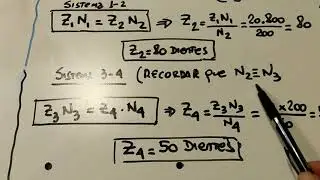 Sistema 1-2
Z₁N₁ = Z₂N₂ ⇒ Z₂ = Z₁N₁/N₂ = 20.800/200 = 80
Z₂=80 Dientes
Sistema 3-4 (RECORDAR que N₂≡N₃
Z₃N₃ = Z₄·N₄ ⇒ Z₄ = Z₃N₃/N₄ = x200
Z₄ = 50 Dientes